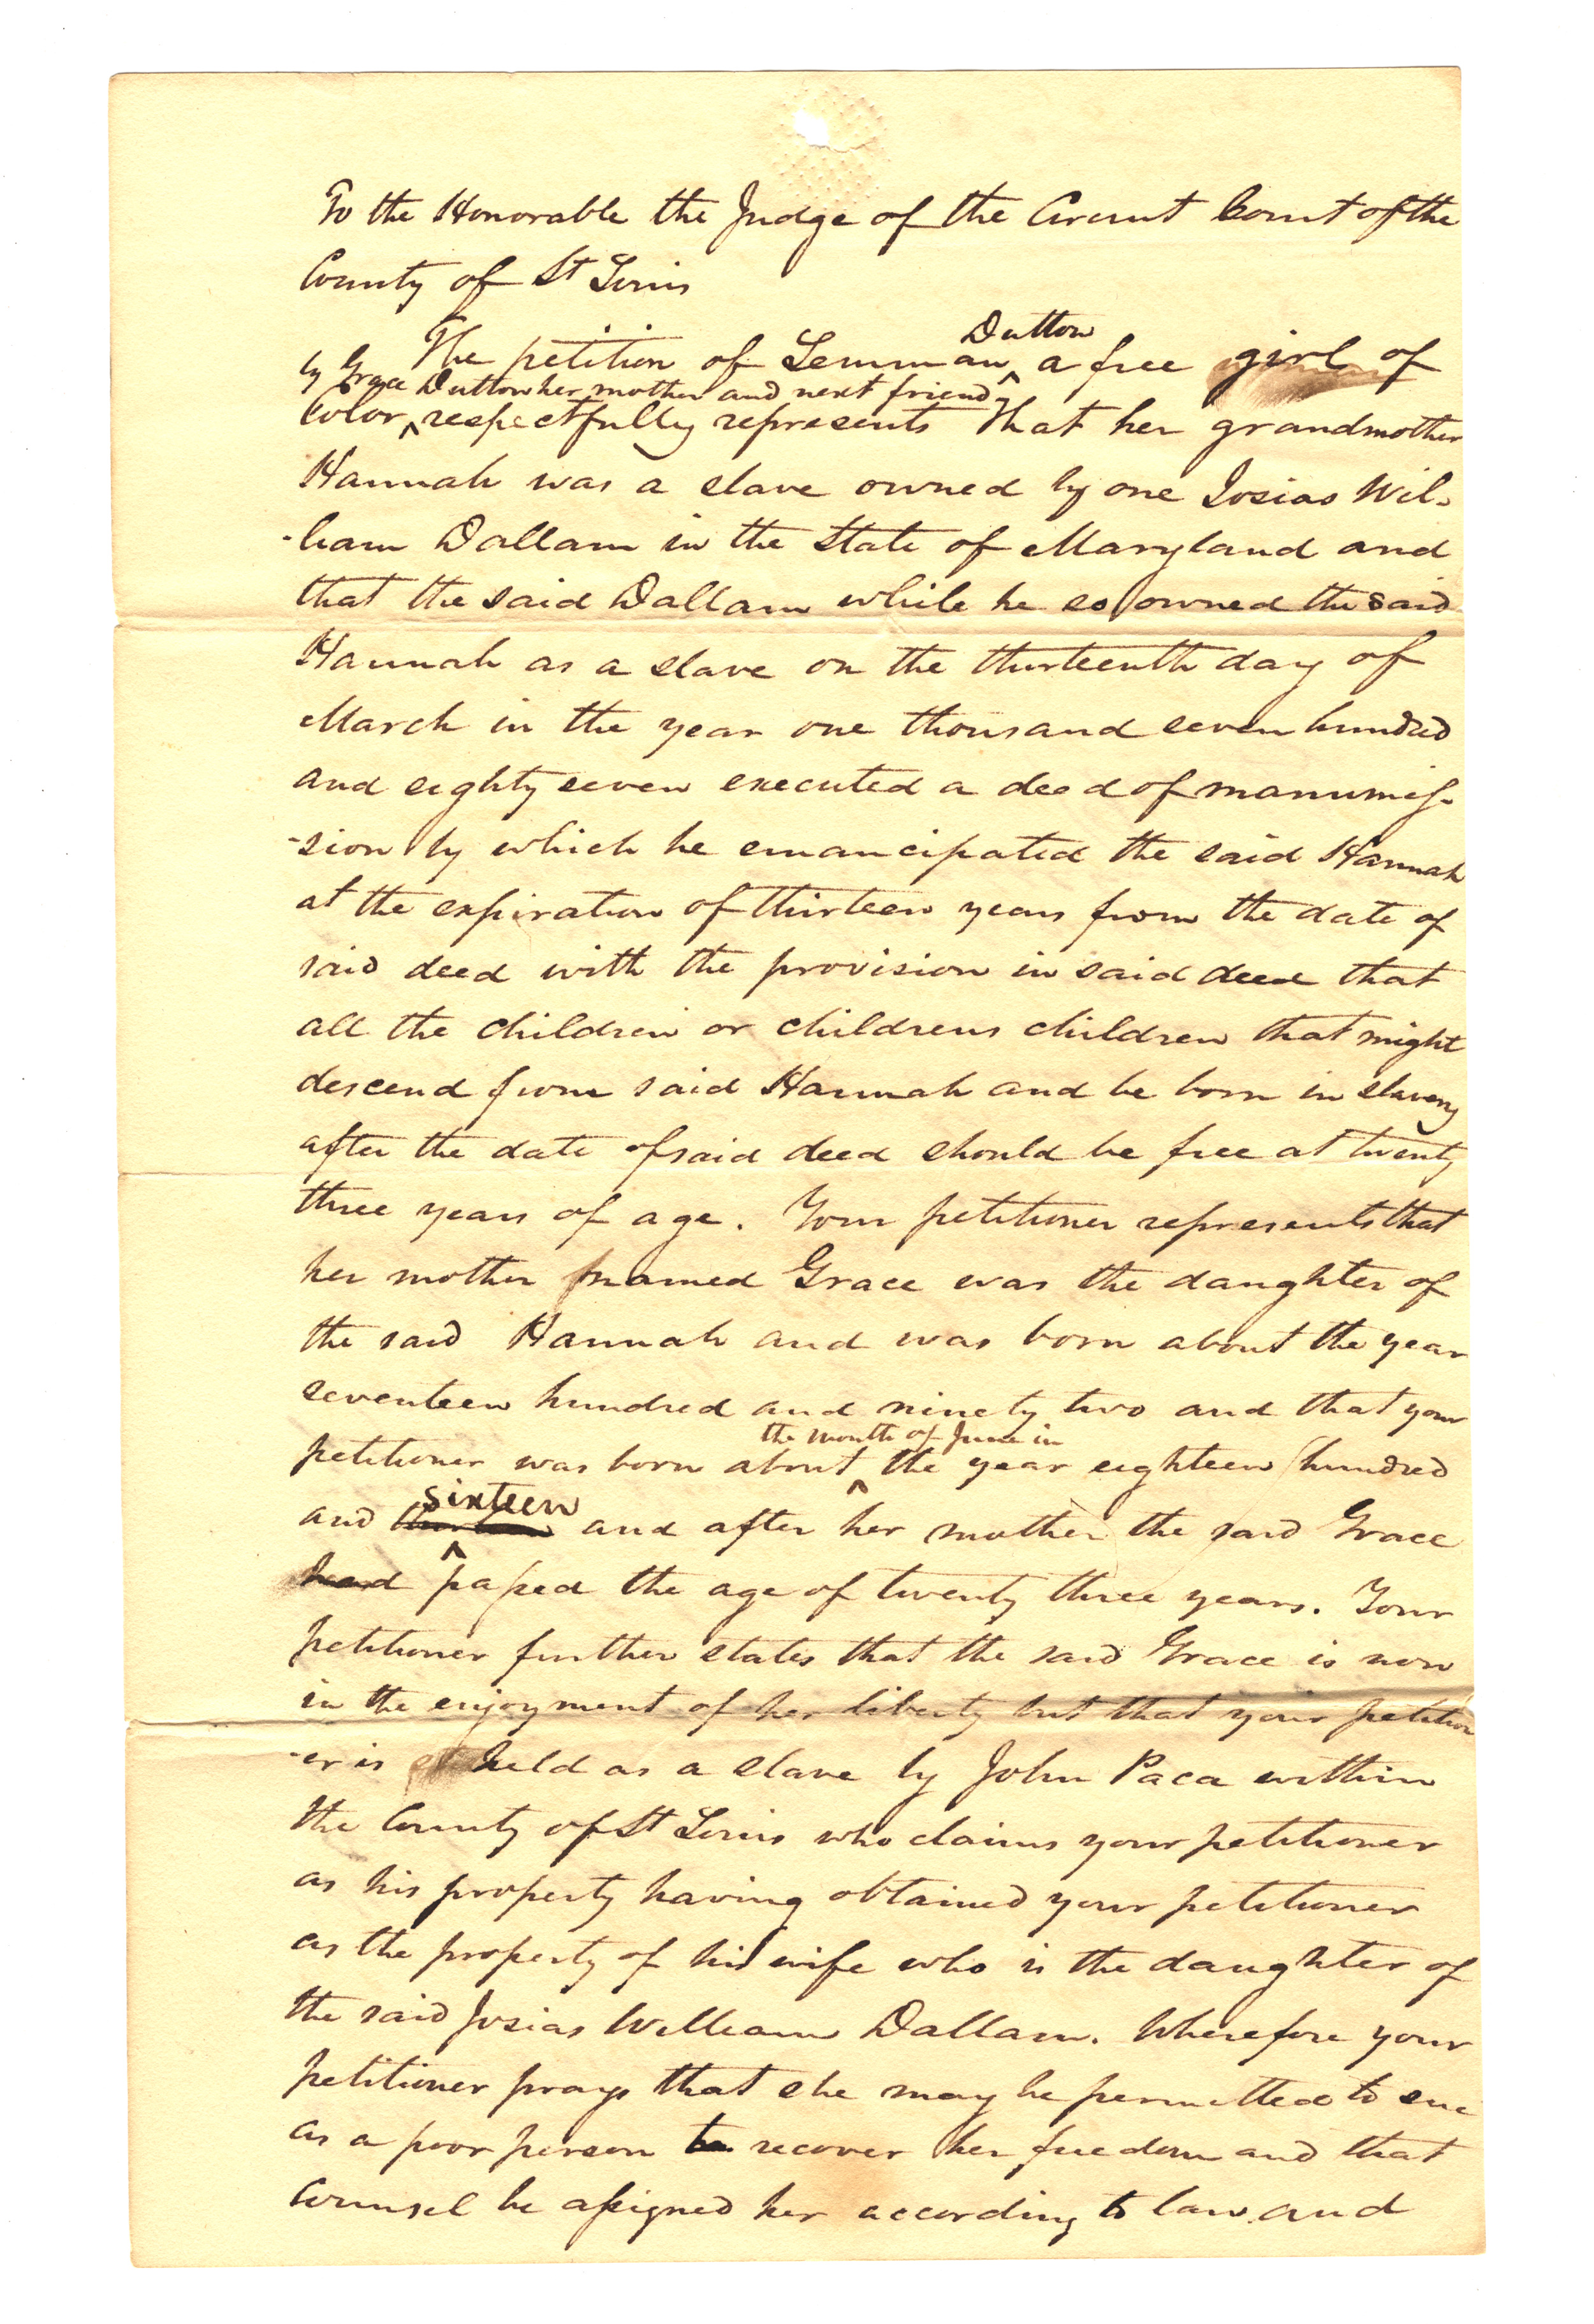 To the Honorable the Judge of the Circuit Court of the
County of St Louis
The petition of Lemman Dutton a free girl of
by Grace Dutton her mother and next friend
Color, respectfully represents That her grandmother
Hannah was a slave owned by one Josias Wil-
-liam Dallam in the State of Maryland and
that the said Dallam while he so owned the said
Hannah as a slave on the thirteenth day of
March in the year one thousand seven hundred
and eighty seven executed a deed of manumis-
-sion by which he emancipated the said Hannah
at the expiration of thirteen years from the date of
said deed with the provision in said deed that
all the children or childrens children that might
descend from said Hannah and be born in slavery
after the date of said deed should be free at twenty
three years of age. Your petitioner represents that
her mother named Grace was the daughter of
the said Hannah and was born about the year
seventeen hundred and ninety two and that your
the month of June in
petitioner was born about the year eighteen hundred
and sixteen and after her mother the said Grace
had passed the age of twenty three years. Your
petitioner further states that the said Grace is now
in the enjoyment of her liberty but that your petition
-er is held as a slave by John Paca within
the County of St Louis who claims your petitioner
as his property having obtained your petitioner
as the property of his wife who is the daughter of
the said Josias William Dallam. Wherefore your
petitioner prays that she may be permitted to sue
as a poor person to recover her freedom and that
Counsel be assigned her according to law and